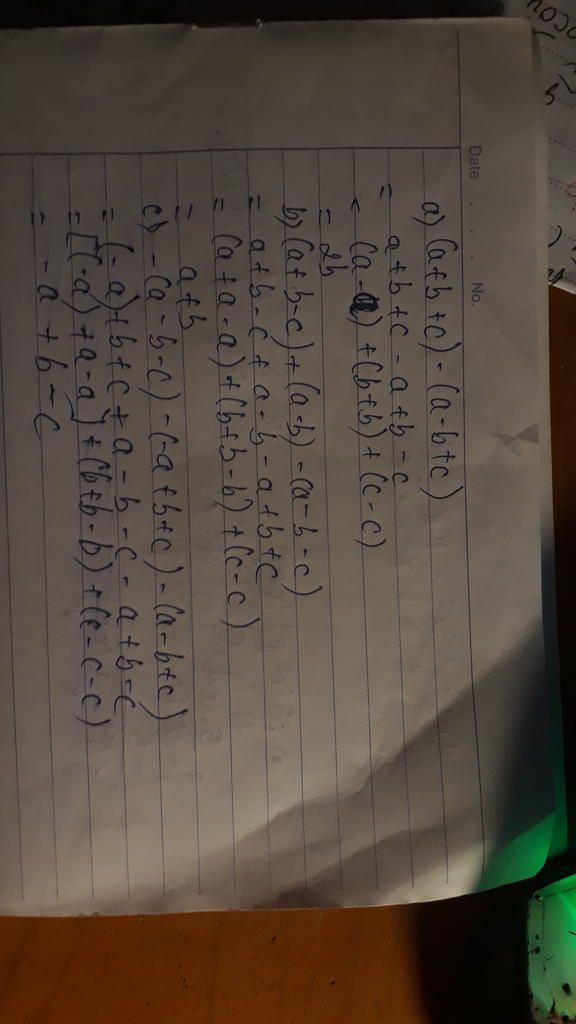 Date . . . No.
a) (a+b+c) - (a-b+c)
= a+b+c-a+b-c
= (a-a) + (b+b) + (c-c)
= 2b
b) (a+b-c) + (a-b) - (a-b-c)
= a+b-c+a-b-a+b+c
= (a+a-a) + (b+b-b) + (c-c)
= a+b
c) - (a-b-c) - (-a+b+c) - (a-b+c)
= (-a)+b+c+a-b-c-a+b-c
= [(-a)+a-a] + (b+b-b) + (c-c-c)
= -a+b-c